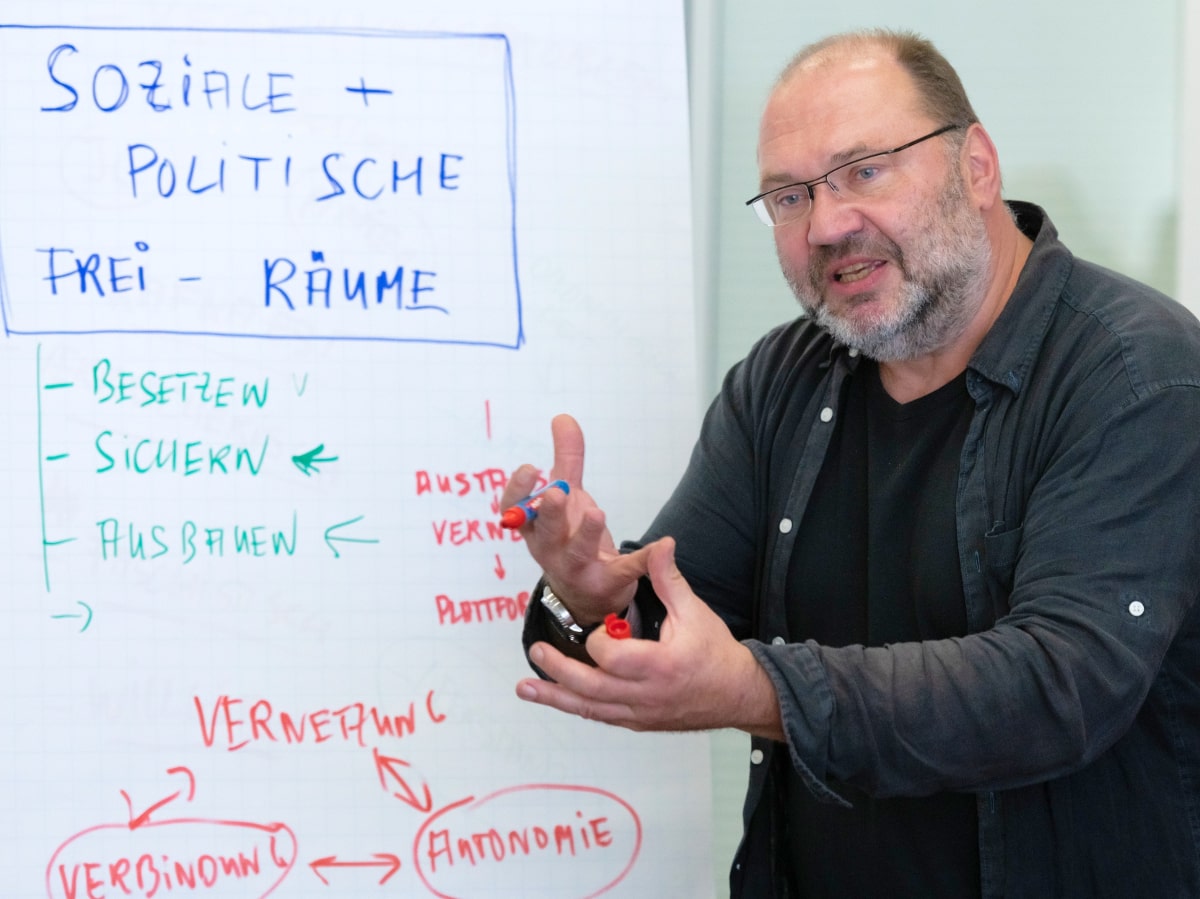 SOZiALE +
POLITISCHE
FREi - RÄUME
- BESETZEN
- SiCHERN
- AUSBAUEN
AUSTA
VERNE
PLATTFOR
VERNETZUNG
VERBiNDUNG
AUTONOMiE